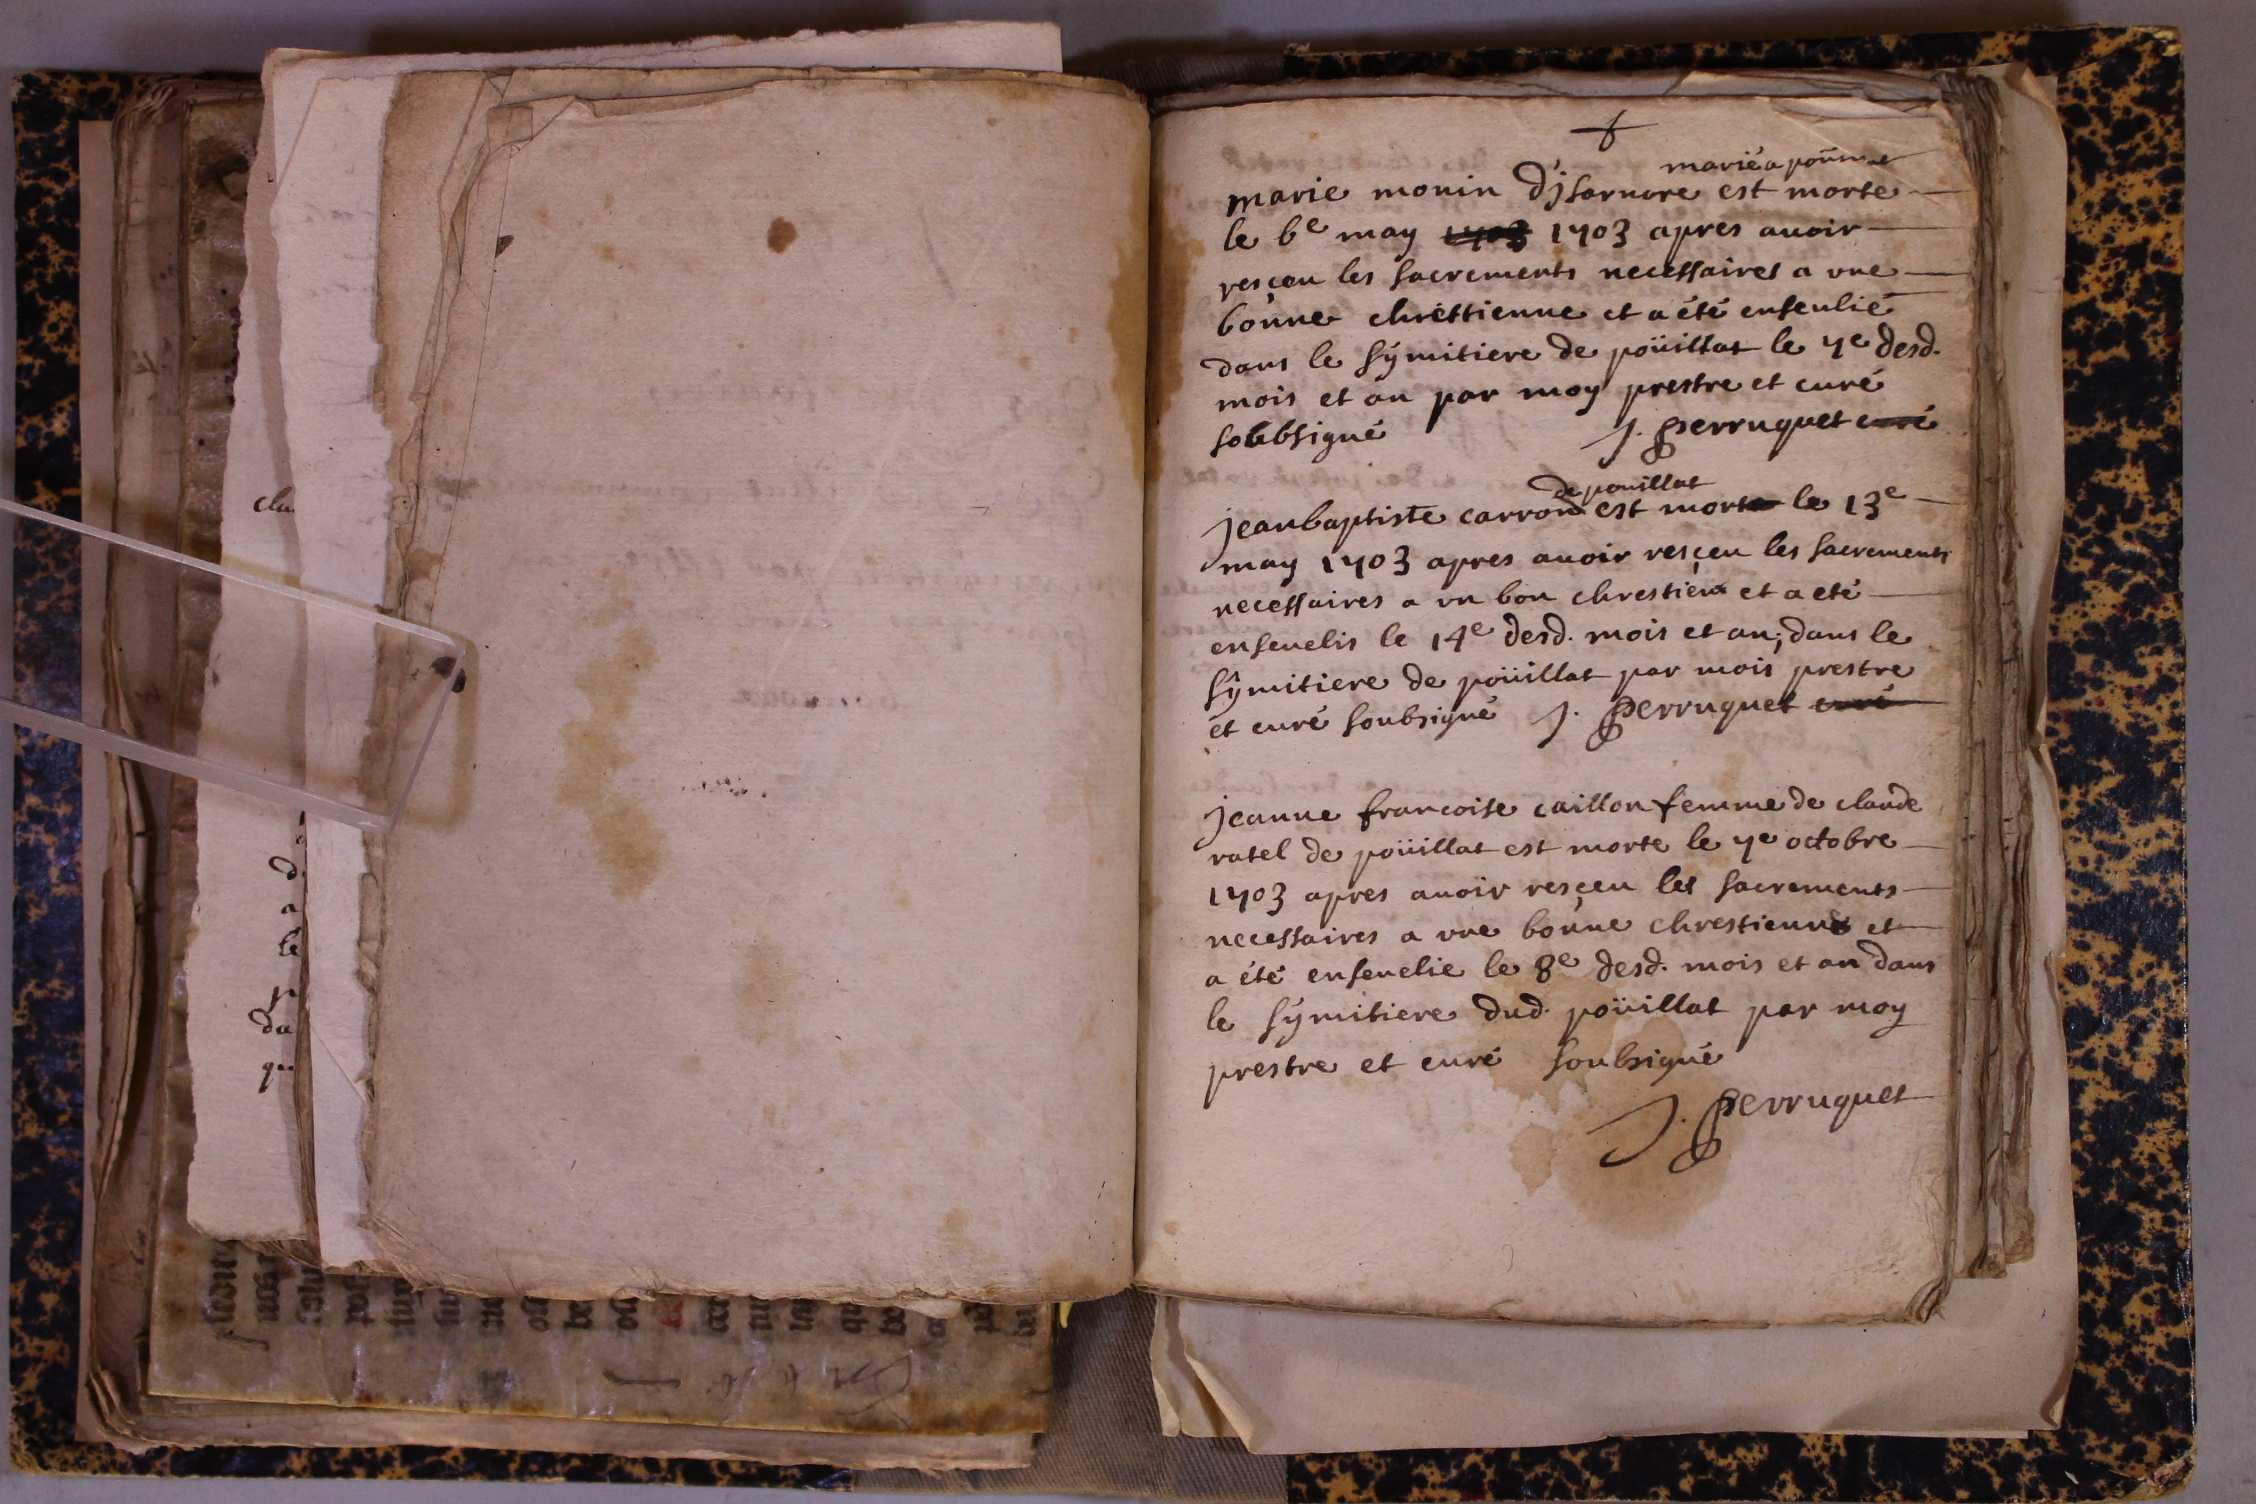 clau
d
a
le
p
da
qu
mariée a pouillat
marie monin d'jsarnore est morte
le 6e may 1703 1703 apres auoir
resçeu les sacrements necessaires a vne
bonne chréttienne et a été enseulié
dans le symitiere de poüillat le 7e desd.
mois et an par moy prestre et curé
soubsigné J. perruquet curé
de pouillat
jeanbaptiste carron est morte le 13e
may 1703 apres auoir resçeu les sacrements
necessaires a vn bon chrestien et a eté
enseuelis le 14e desd. mois et an, dans le
symitiere de poüillat par mois prestre
et curé soubsigné J. perruquet curé
jeanne francoise caillon femme de claude
ratel de poüillat est morte le 7e octobre
1703 apres auoir resçeu les sacrements
necessaires a vne bonne chrestienne et
a été enseuelie le 8e desd. mois et an dans
le symitiere dud. poüillat par moy
prestre et curé soubsigné
J. perruquet